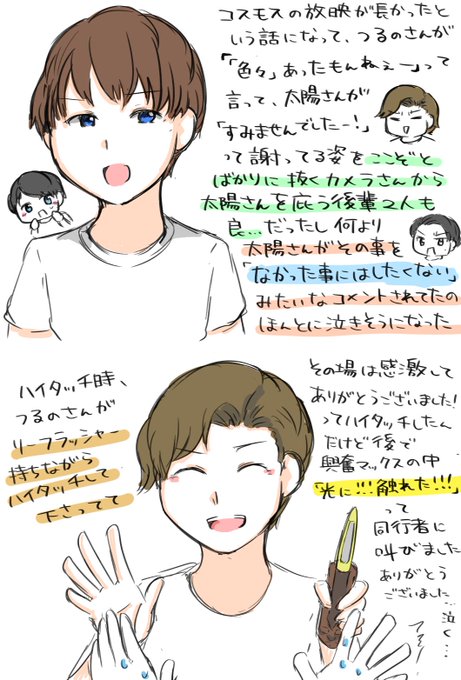 コスモスの放映が長かったと
いう話になって、つるのさんが
「「色々」あったもんねぇー」って
言って、太陽さんが
「すみませんでしたー!」
って謝ってる姿をここぞと
ばかりに抜くカメラさんから
太陽さんを庇う後輩2人も
良…だったし何より
太陽さんがその事を
「なかった事にはしたくない」
みたいなコメントされてたの
ほんとに泣きそうになった
ハイタッチ時、
つるのさんが
リーフラッシャー
持ちながら
ハイタッチして
下さってて
その場は感激して
ありがとうございました!
ってハイタッチしたん
だけど後で
興奮マックスの中
「光に!!!触れた!!!」
って
同行者に
叫びました
ありがとう
ございました…
泣く…